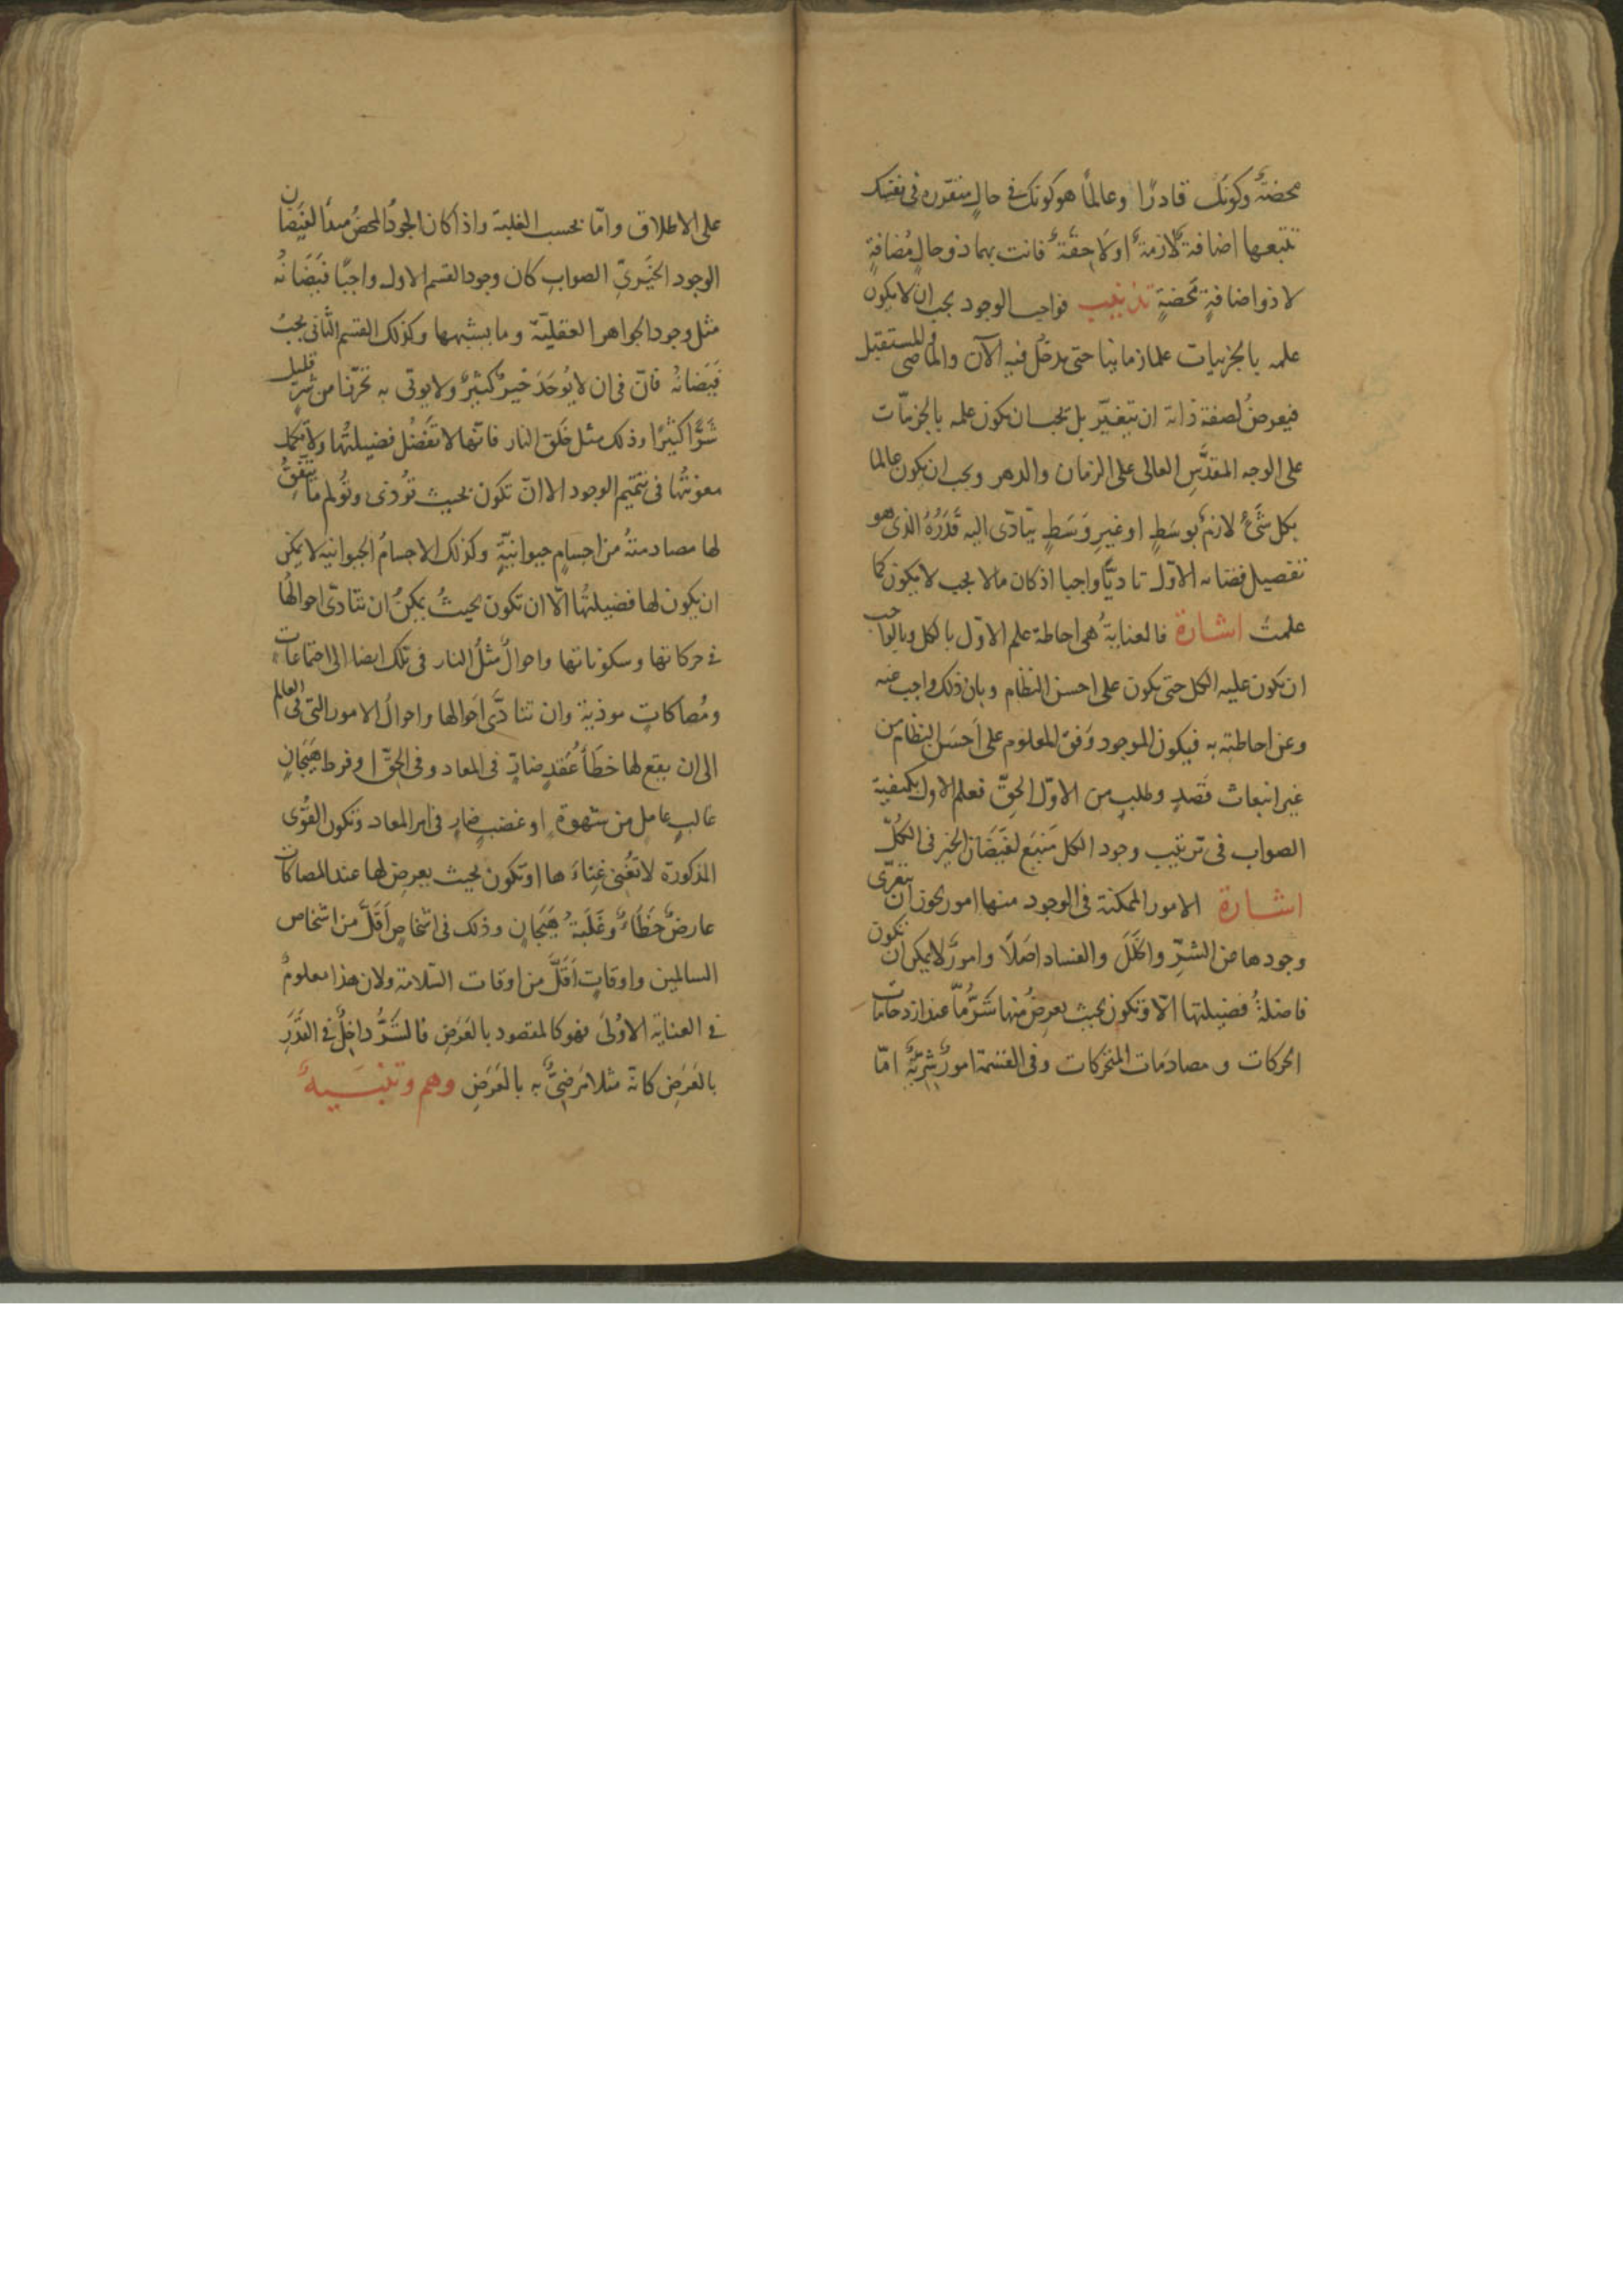 محضةٌ وكونك قادرًا وعالمًا هو كونك فى حالٍ متقررة فى نفسك
تتبعها اضافةٌ لازمةٌ او لاحقةٌ فانت بهما ذو حالٍ مُضافةٍ
لا ذو اضافةٍ محضةٍ تذنيب فواجب الوجود يجب ان لا يكون
علمه بالجزئيات علما زمانيا حتى يدخُل فيه الآن والماضى والمستقبل
فيعرضُ لصفة ذاته ان تتغيّر بل يجب ان يكون علمه بالجزئيّات
على الوجه المقدَّسِ العالى على الزمان والدهر ويجب ان يكون عالما
بكل شَىءٍ لازمٌ بوسَطٍ او غيرِ وَسَطٍ يتادّى اليه قَدَرُهُ الذى هو
تفصيل قضائه الاوّل تاديًّا واجبا اذ كان ما لا يجب لا يكون كما
علمتَ اشارة فالعنايةُ هى احاطة علم الاوّل بالكل وبالواجب
ان يكون عليه الكل حتى يكون على احسن النظام وبان ذلك واجب عنه
وعن احاطته به فيكون الموجود وَفق المعلوم على اَحسَن النظام من
غير انبعاث قَصدٍ وطلبٍ من الاوّل الحقّ فعلم الاول بكيفية
الصواب فى ترتيب وجود الكل مَنبَع لفَيَضَان الخير فى الكُلّ
اشارة الامور الممكنة فى الوجود منها امور يجوز ان يتعرّى
وجودها من الشرّ والخَلَل والفساد اصلًا وامورٌ لا يمكن ان تكون
فاضلةً فضيلتها الّا وتكون بحيث يعرضُ منها شَرٌّ مّا عند ازدحامات
الحركات و مصادَمات المتحركات وفى القسمة امورٌ شرّيّةٌ امّا
على الاطلاق وامّا بحسب الغلبة واذا كان الجودُ المحضُ مبدأ لفَيَضان
الوجود الخَيْرىِّ الصوابِ كان وجود القسم الاول واجبًا فَيَضَانُه
مثل وجود الجواهر العقليّة وما يشبهها وكذلك القسم الثّانى يجبُ
فَيَضانُه فانّ فى ان لا يُوجَدَ خيرٌ كثيرٌ ولا يوتى به تحرّزا من شرٍّ قليل
شَرًّا كثيرًا وذلك مثل خَلق النار فانّها لا تَفضُل فضيلتُها ولا تكمل
معونتُها فى تتميم الوجود الا انّ تكون بحيث تُوذى وتُولم ما يتّفِقُ
لها مصادمتهُ من اجسامٍ حيوانيّةٍ وكذلك الاجسامُ الحيوانيه لا يمكن
ان يكون لها فضيلتُها الّا ان تكون بحيثُ يمكنُ ان تتادّى احوالُها
فى حركاتها وسكوناتها واحوالُ مثلُ النار فى تلك ايضا الى اجتماعات
ومُصاكاتٍ موذية وان تتادَّى اَحوالها واحوالُ الامور التى فى العالم
الى ان يقع لها خطَأُ عَقدٍ ضارٍّ فى المعاد وفى الحقّ او فرط هَيَجَانٍ
غالبٍ عامل من شهوة او غضبٍ ضارٍ فى امر المعاد وتكون القُوَى
المذكورة لا تُغنى غناءَها او تكون بحيث يعرض لها عند المصاكات
عارضُ خَطَاءٍ وغَلَبة هَيَجَانٍ وذلك فى اشخاصٍ اَقَلَّ من اشخاص
السالمين واوقاتٍ اَقَلَّ من اوقات السّلامة ولان هذا معلومٌ
فى العناية الاولى فهو كالمقصود بالعَرَضِ فالشَرُّ داخلٌ فى القَدَرِ
بالعَرَضِ كانّه مثلا مَرضىٌّ به بالعَرَضِ وهم وتنبيهٌ